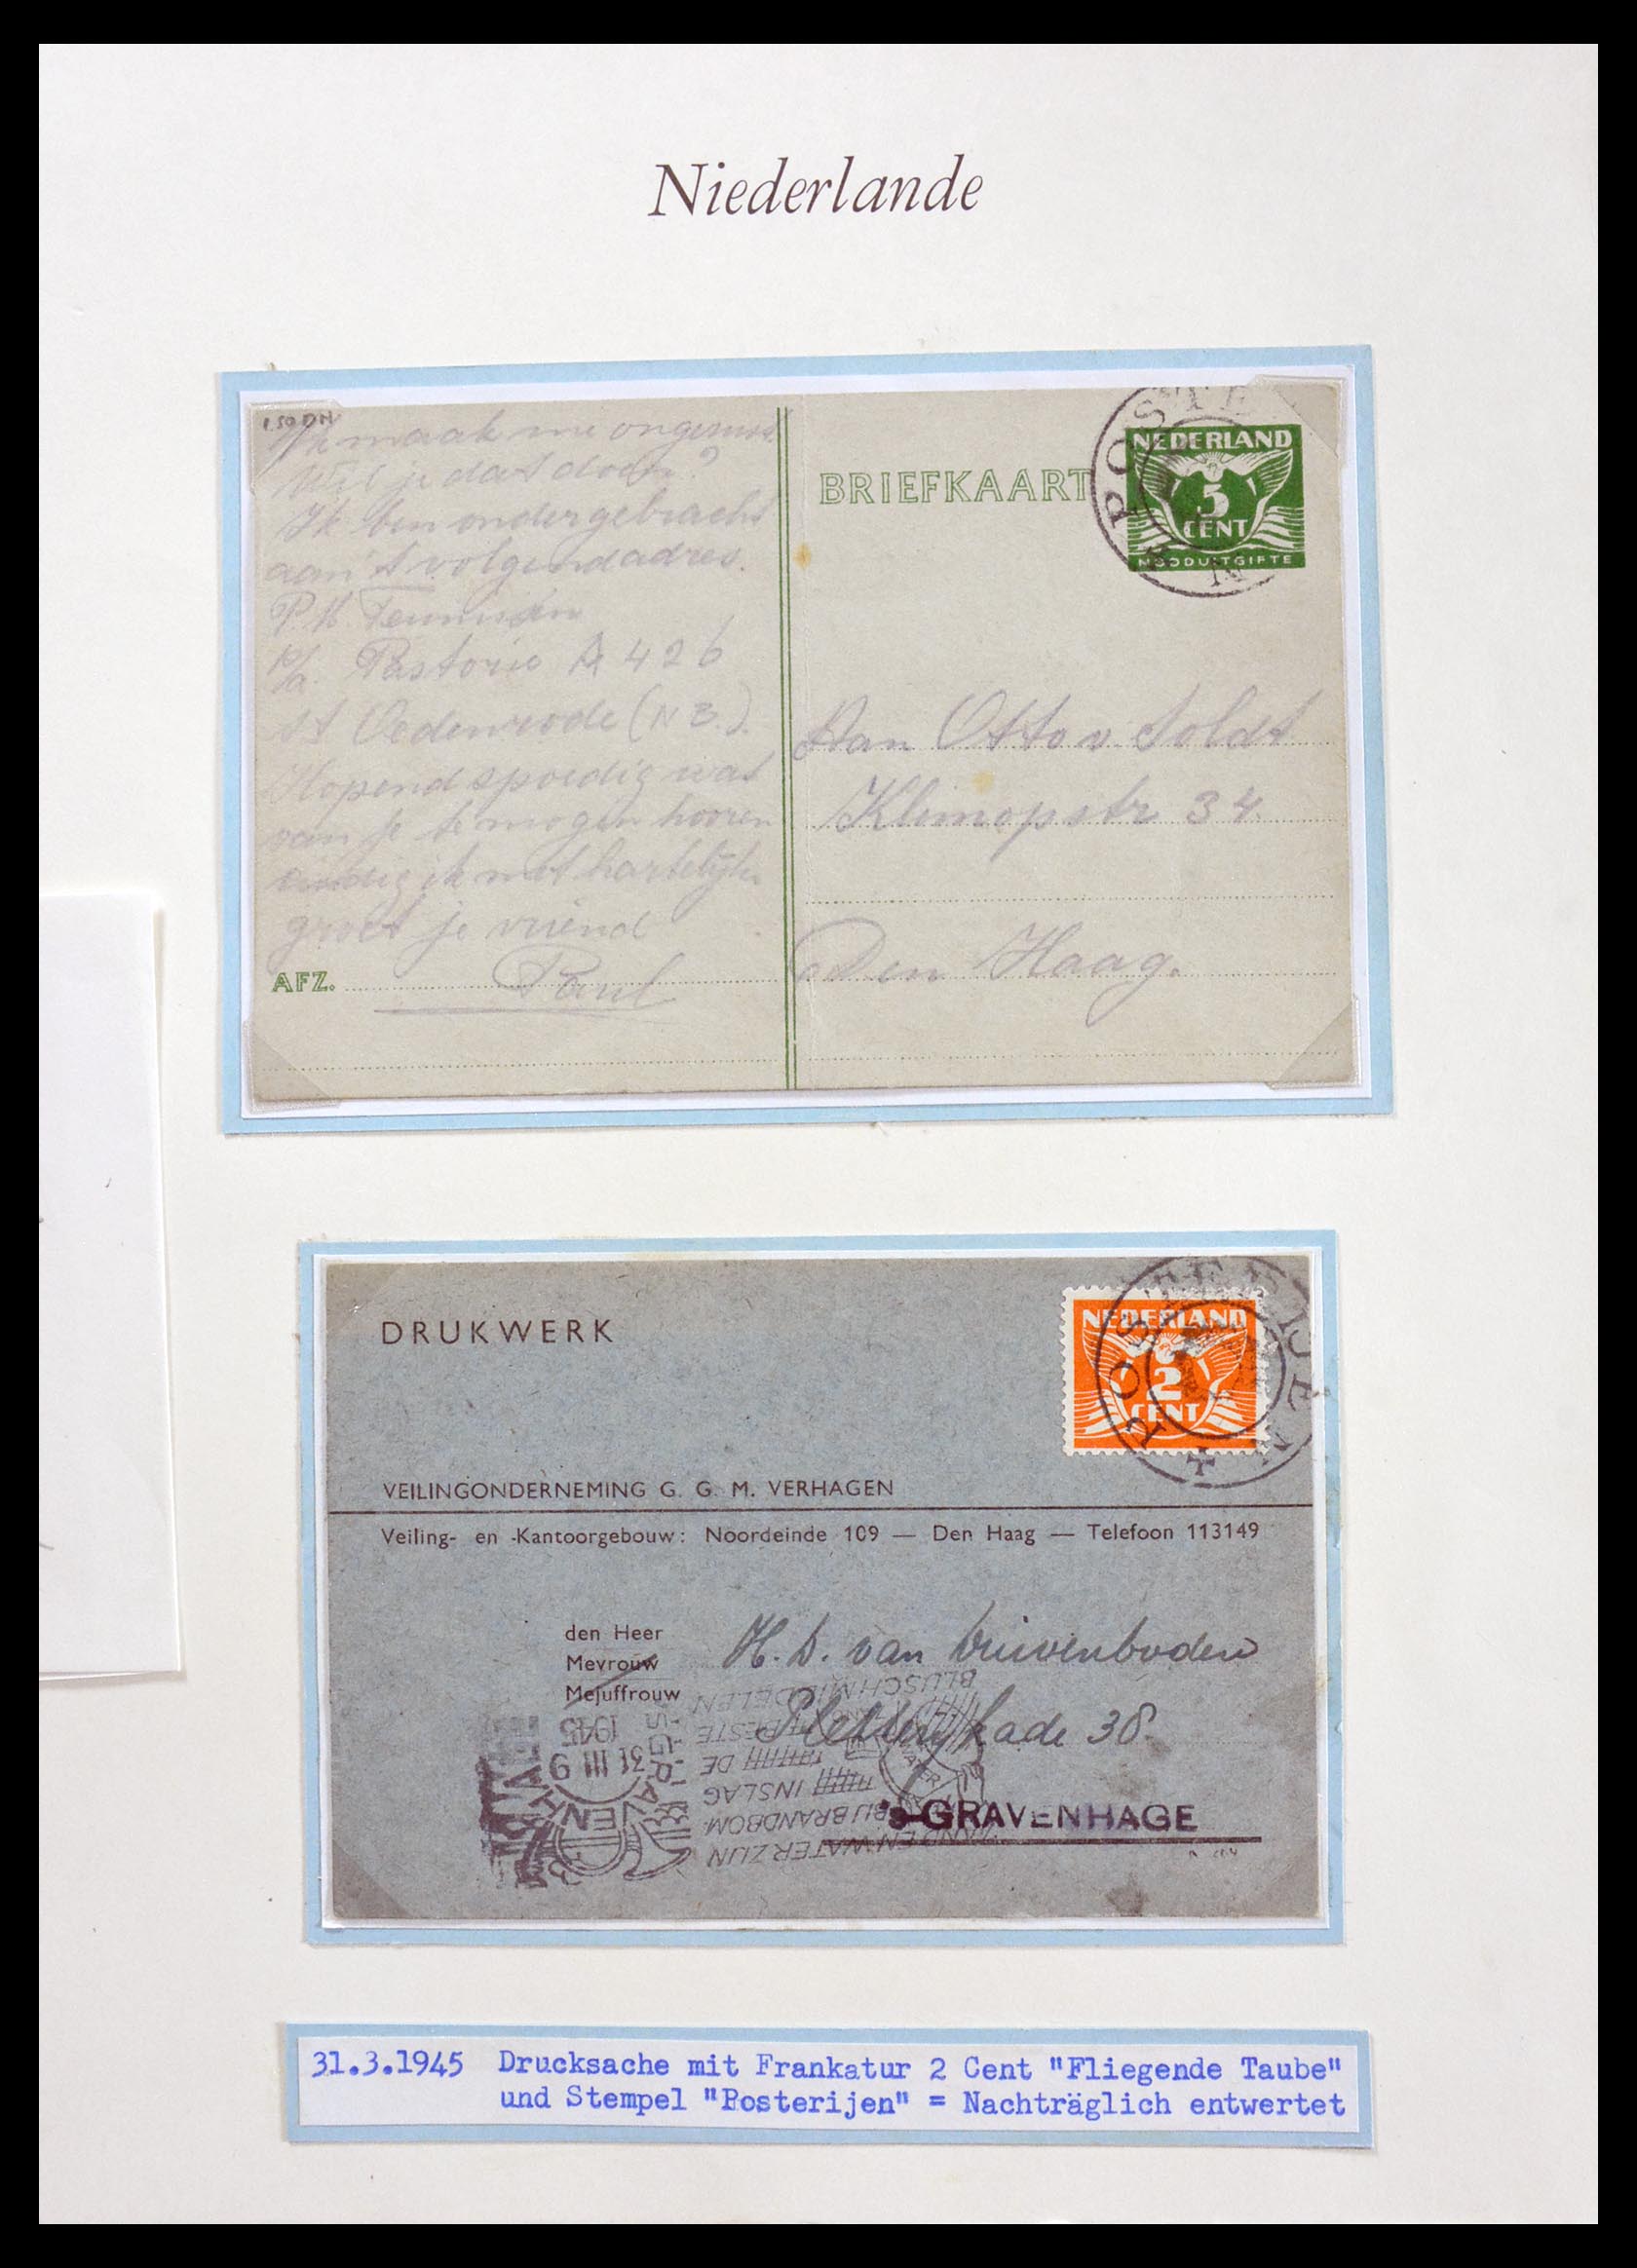 Niederlande
1.50 DM
Ik maak me ongerust.
Wil je dat doen?
Ik ben ondergebracht
aan 't volgend adres.
P. H.
p/a. Pastorie A 426
St Oedenrode (N B.).
Hopend spoedig wat
van je te mogen hooren
eindig ik met hartelijke
groet je vriend
Paul
AFZ.
BRIEFKAART
POSTE
NEDERLAND
5
CENT
NOODUITGIFTE
Aan Otto v. Soldt
Klimopstr 34.
Den Haag.
DRUKWERK
NEDERLAND
2
CENT
POSTERIJEN
VEILINGONDERNEMING G. G. M. VERHAGEN
Veiling- en -Kantoorgebouw: Noordeinde 109 — Den Haag — Telefoon 113149
den Heer
Mevrouw
Mejuffrouw
H. D. van
kade 38.
's-GRAVENHAGE
ZAND EN WATER ZIJN
BIJ BRANDBOM
INSLAG
DE
BESTE
BLUSCHMIDDELEN
'S-GRAVENHAGE
31 III 9
1945
31.3.1945 Drucksache mit Frankatur 2 Cent "Fliegende Taube"
und Stempel "Posterijen" = Nachträglich entwertet